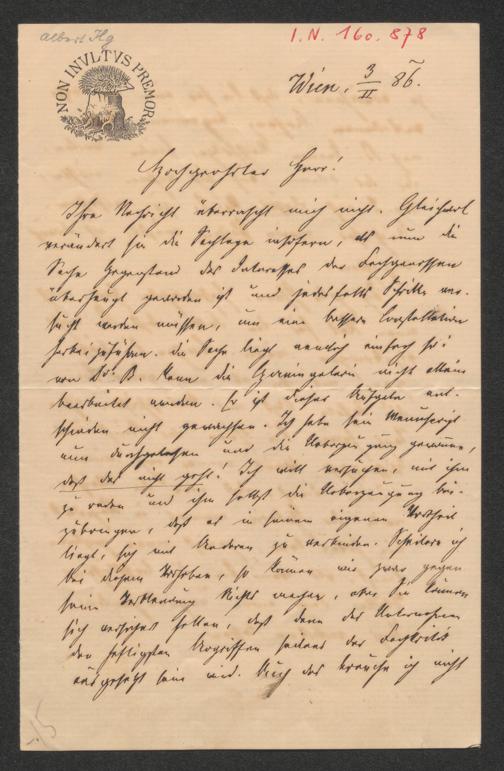 Albert Ilg
I. N. 160.878
NON INVLTVS PREMOR
Wien, 3/II 86.
Hochgeehrter Herr!
Ihre Nachricht überrascht mich nicht. Gleichwol
verändert sie die Sachlage insofern, als nun die
Sache Gegenstand des Interesses der Fachgenossen
überhaupt geworden ist und jedesfalls Schritte ver-
sucht werden müssen, um eine bessere Constellation
herbeizuführen. Die Sache liegt nemlich einfach so:
von Dr. B. kann die nicht allein
bearbeitet werden. Er ist dieser Aufgabe ent-
schieden nicht gewachsen. Ich habe sein Manuscript
nun durchgelesen und die Ueberzeugung gewonnen,
daß das nicht geht! Ich will versuchen, mit ihm
zu reden und ihm selbst die Ueberzeugung bei-
zubringen, daß es in seinem eigenen Vortheil
liegt, sich mit Anderen zu verbinden. Scheitere ich
bei diesem Vorhaben, so können wir zwar gegen
seine Verblendung Nichts machen, aber Sie können
sich versichert halten, daß dann das Unternehmen
den heftigsten Angriffen seitens der Fachkritik
ausgesetzt sein wird. Auch das brauche ich nicht